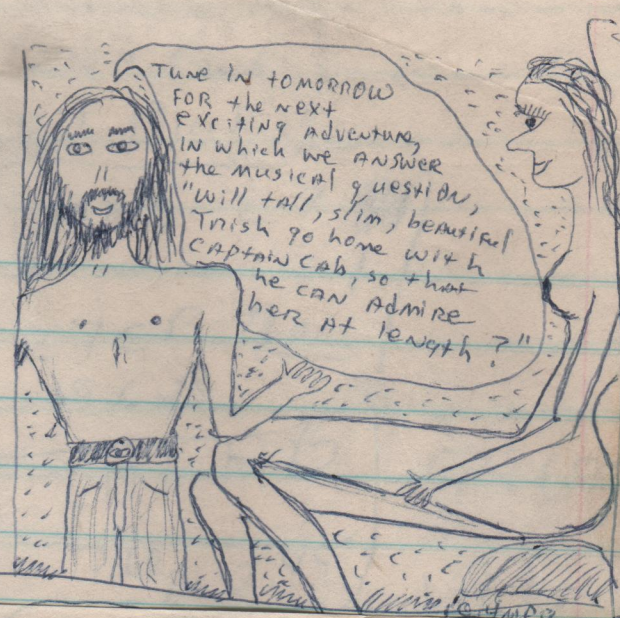 TUNE IN TOMORROW
FOR the NEXT
EXCITING ADVENTURE,
IN WHICH WE ANSWER
the MUSICAL QUESTION,
"WILL tALL, SLIM, beAUTIFUL
TRISH go home WITH
CAPTAIN CAB, SO thAT
he CAN ADMIRE
heR AT LENGTH?"